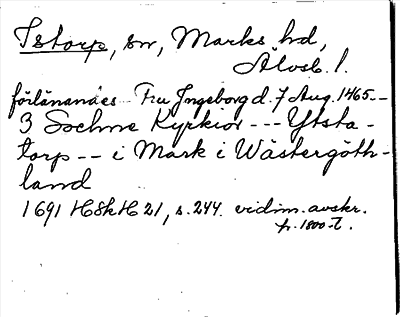 Istorp, sn, Marks hd,
Älvsb. l.
förlänandes -- Fru Jngeborg d. 7 Aug. 1465 --
3 Sochne Kyrkior --- Ytsta-
torp -- i Mark i Wästergöth-
land
1691 HSkH 21, s. 244. vidim. avskr.
fr. 1800-t.